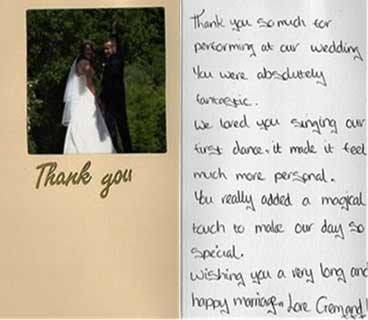 Thank you
Thank you so much for
performing at our wedding
You were absolutely
fantastic.
We loved you singing our
first dance, it made it feel
much more personal.
You really added a magical
touch to make our day so
special.
Wishing you a very long and
happy marriage, Love